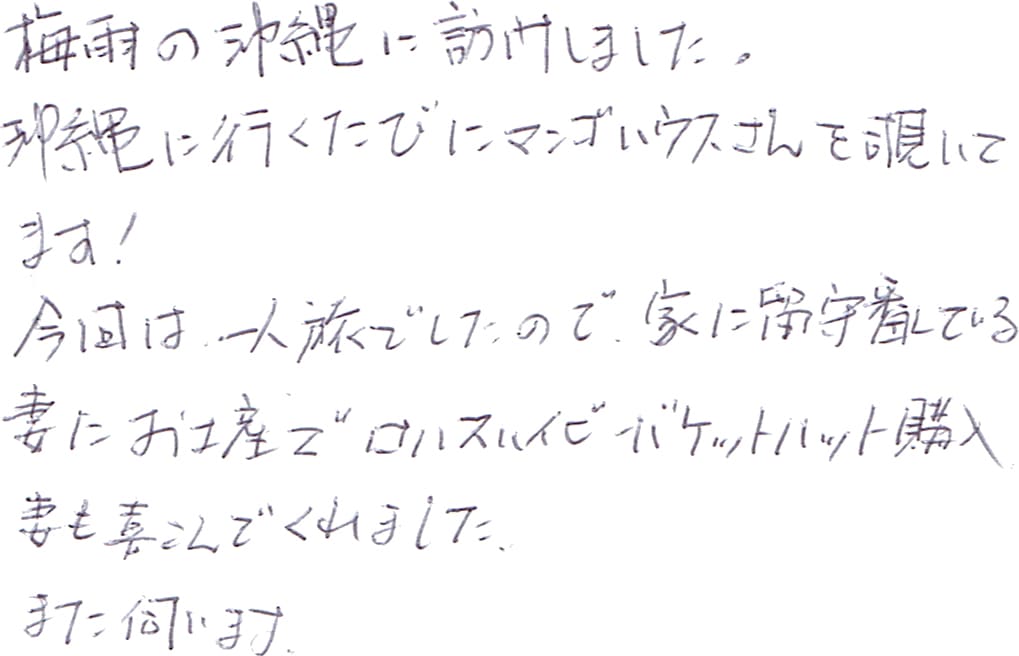 梅雨の沖縄に訪問しました。
沖縄に行くたびにマンゴハウスさんを覗いて
ます!
今回は、一人旅でしたので、家に留守番している
妻にお土産でロハスハイビーバケットハット購入
妻も喜こんでくれました。
また伺います。